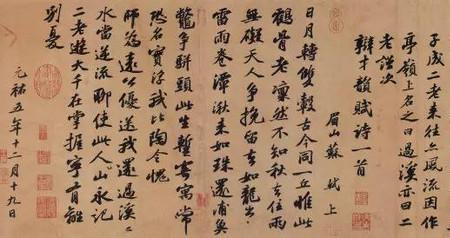 子成二老来往亦風流因作
亭嶺上名之曰過溪亦曰二
老謹次
辯才韻賦詩一首
眉山蘇軾上
日月轉雙轂古今同一丘惟此
鶴骨老凜然不知秋去住兩
無礙天人爭挽留去如龍出山
雷雨卷潭湫来如珠還浦魚
鼈爭駢頭此生暫寄寓常
恐名實浮我比陶令愧
師為遠公優送我還過溪溪
水當逆流聊使此人山永記
二老遊大千在掌握寧有離
別憂
元祐五年十二月十九日